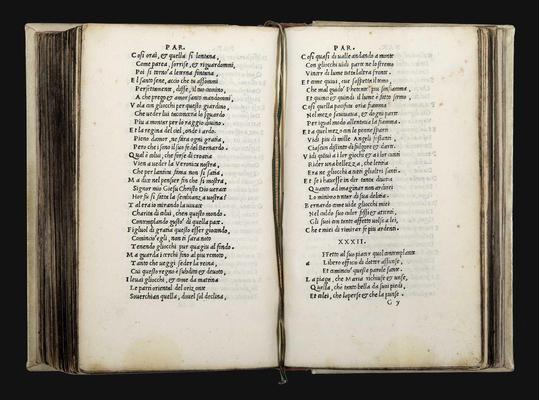 PAR.
Cosi orai, et quella si lontana,
Come parea, sorrise, et riguardommi,
Poi si torno a l eterna fontana,
E l santo sene, accio che tu assommi
Perfettamente, disse, il tuo camino,
A che prego et amor santo mandommi,
Vola con gliocchi per questo giardino;
Che veder lui
Piu a montar per lo raggio divino.
Et la regina del ciel, ond i ardo
Pieno d amor, ne fara ogni gratia,
Pero ch i sono il suo fedel Bernardo.
Qual è colui, che forse di croatia
Vien a veder la Veronica nostra,
Che per l antica fama non si satia,
Ma dice nel pensier fin che si mostra,
Signor mio Giesu Christo Dio verace
Hor fu si fatta la sembianza vostra?
Tal era io mirando la vivace
Charita di colui, che n questo mondo
Contemplando gusto di quella pace.
Figliuol di gratia questo esser giocondo,
Comincio egli, non ti sara noto
Tenendo gliocchi pur qua giu al fondo.
Ma guarda i cerchi fino al piu remoto,
Tanto che veggi seder la reina,
Cui questo regno è subdito et devoto,
I levai gliocchi, et come da matina
Le parti oriental de l orizonte
Soverchian quella, dove l sol declina,
PAR.
Cosi quasi di valle andando a monte
Con gliocchi vidi parte ne lo stremo
Vincer di lume tutta l altra fronte.
Et come quivi, ove s aspetta il temo,
Che mal guido Phetonte, piu s infiamma,
Et quinci et quindi il lume è fatto scemo,
Cosi quella pacifica oria fiamma
Nel mezo s avvivava, et d ogni parte
Per igual modo allentava la fiamma.
Et a quel mezo con le penne sparte
Vidi piu di mille Angeli festanti,
Ciascun distinto di fulgore et d arte.
Vidi quivi a i lor giochi et a i lor canti
Rider una bellezza, che letitia
Era ne gliocchi a tutti gli altri santi.
Et s i havesse in dir tanta divitia
Quanto ad imaginar non ardirei
Lo minimo tentar di sua delitia.
Bernardo come vide gliocchi miei
Nel caldo suo calor fissi et attenti,
Gli suoi con tanto affetto volse a lei,
Che e miei di rimirar fe piu ardenti.
XXXII.
a
Libero officio di dottor assunse,
Et comincio queste parole sante.
La piaga, che Maria richiuse et unse,
Quella, ch è tanto bella da suoi piedi,
Et colei, che l aperse et che la punse.
C y